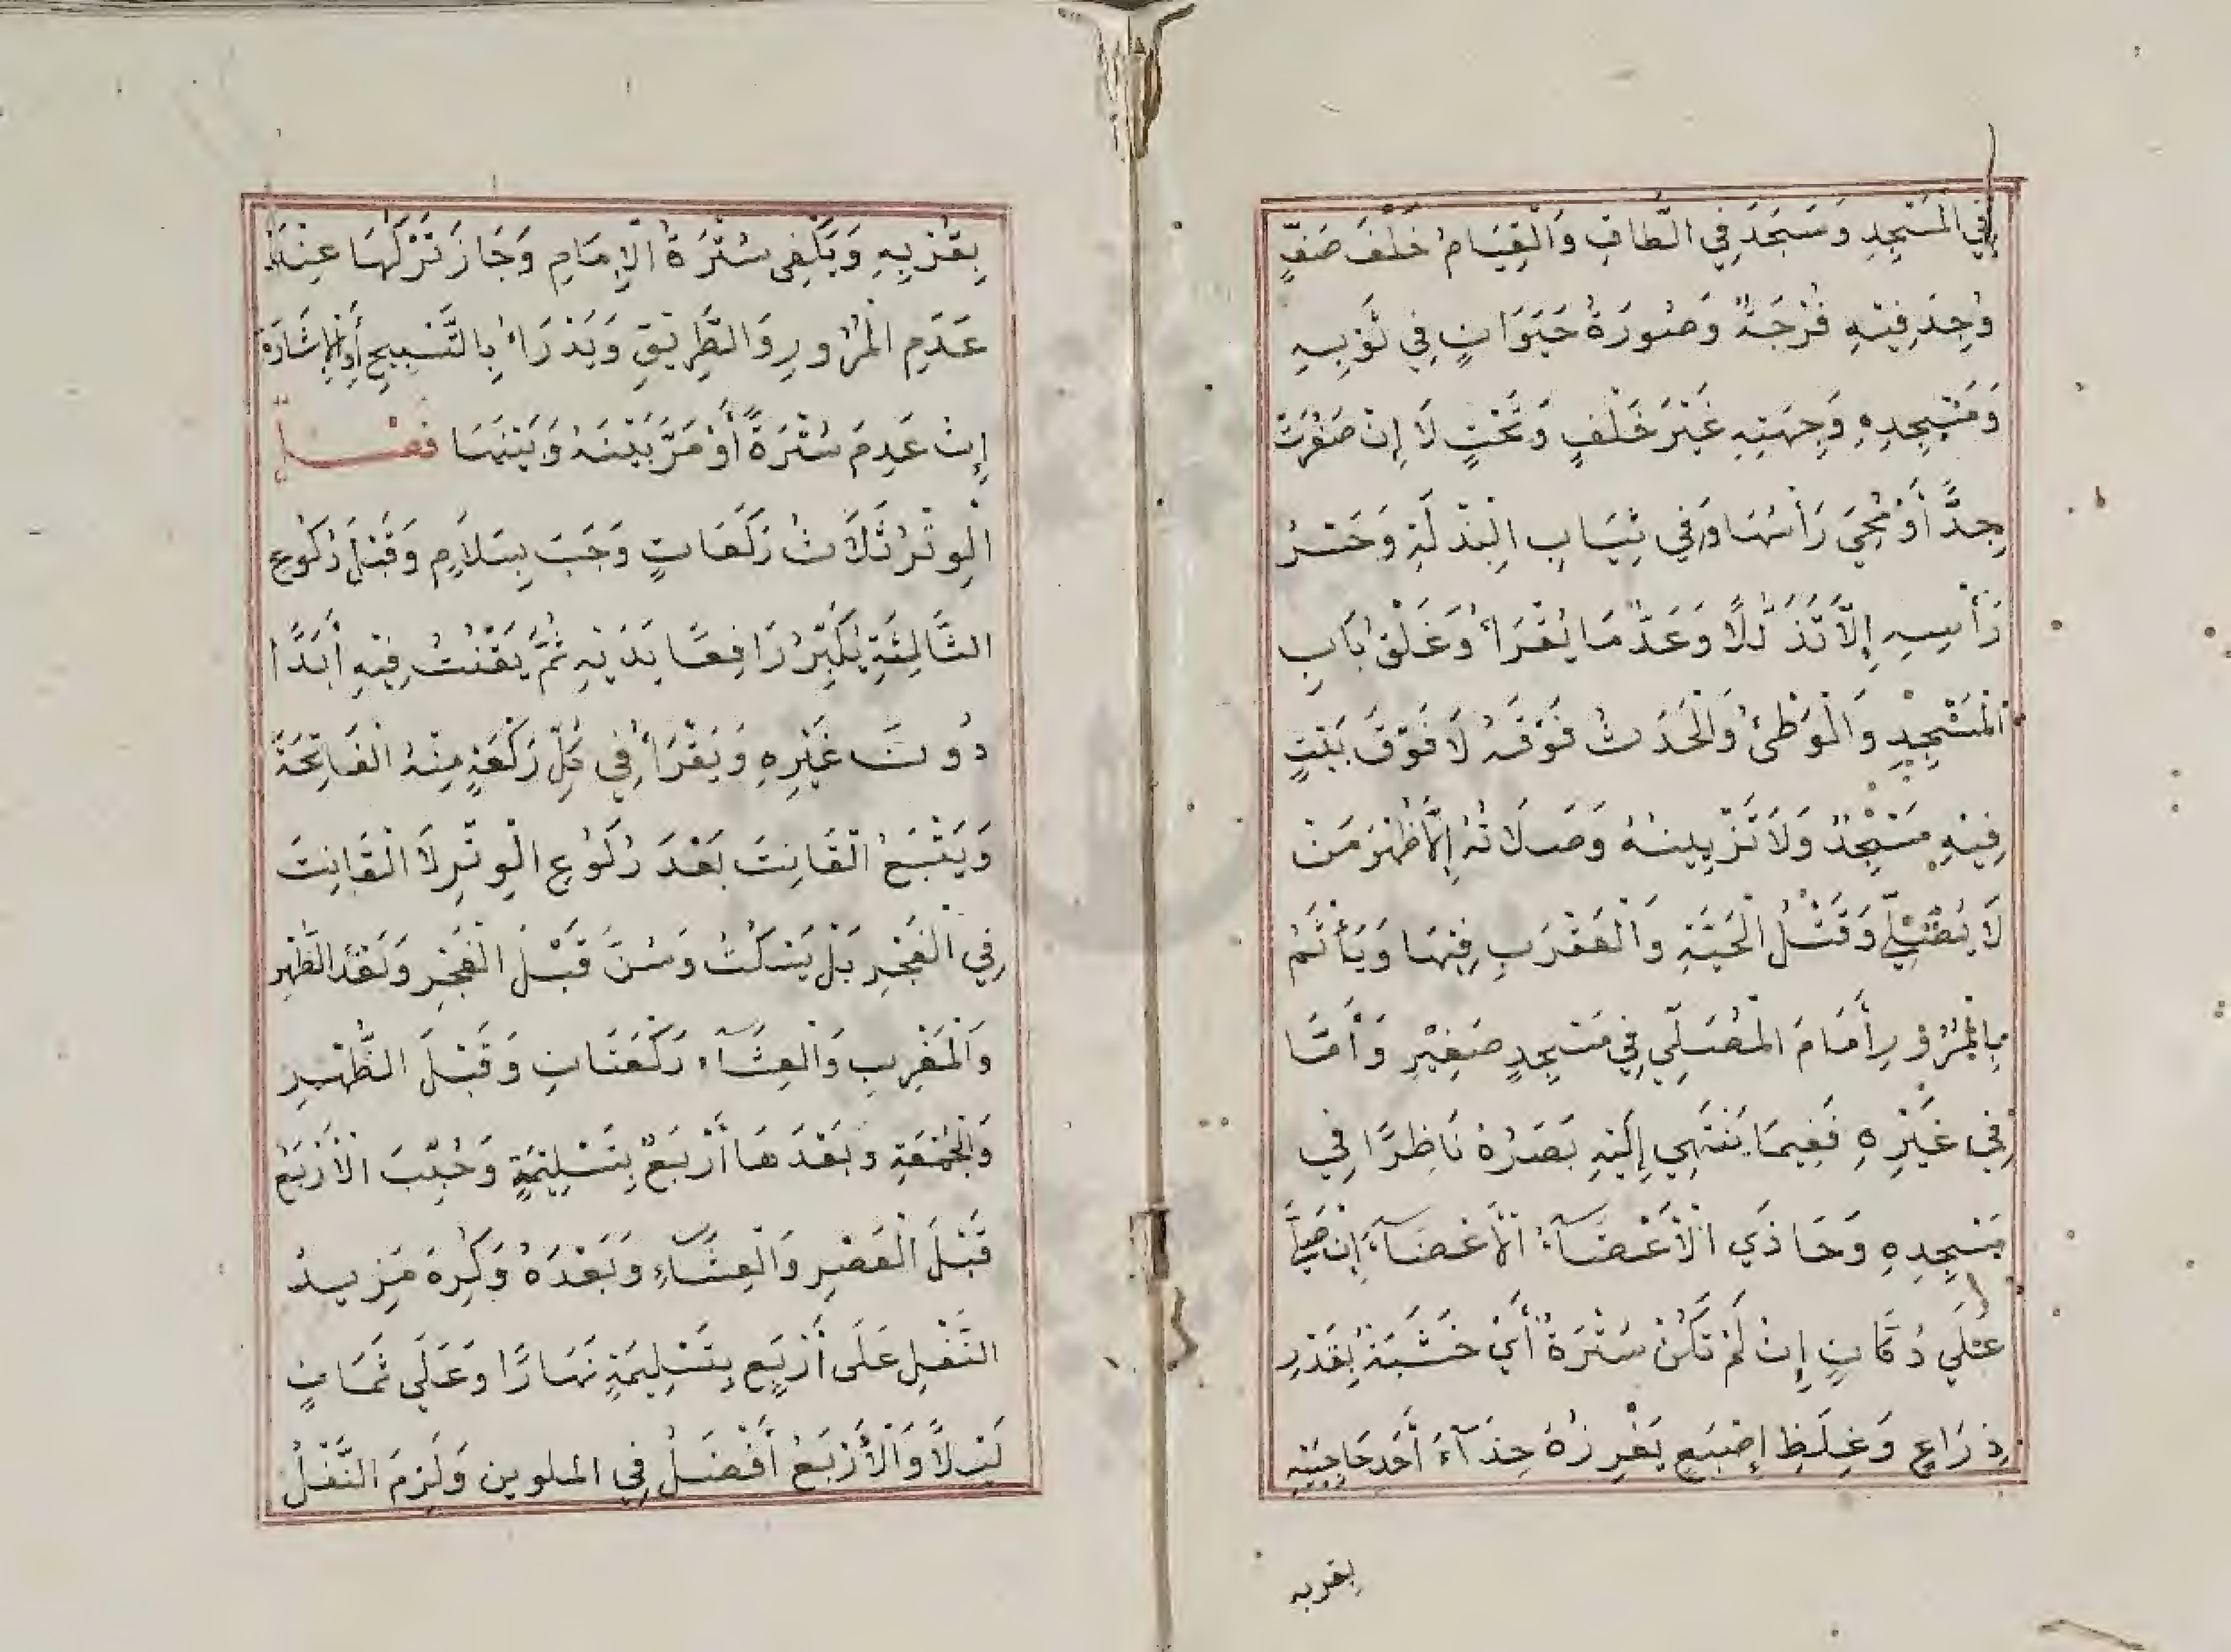 فِي الْمَسْجِدِ وَسَجَدَ فِي الطَّاقِ وَالْقِيَامُ خَلْفَ صَفٍّ
وُجِدَ فِيْهِ فُرْجَةٌ وَصُورَةُ حَيَوَانٍ فِي ثَوْبِهِ
وَمَسْجِدِهِ وَجِهَتِهِ غَيْرَ خَلْفٍ وَتَحْتٍ لَا إِنْ صَغُرَتْ
جِدًّا أَوْ مُحِيَ رَأْسُهَا وَفِي ثِيَابِ الْبِذْلَةِ وَحَسْرُ
رَأْسِهِ إِلَّا تَذَلُّلًا وَعَدُّ مَا يُقْرَأُ وَغَلْقُ بَابِ
الْمَسْجِدِ وَالْوَطْئُ وَالْحَدَثُ فَوْقَهُ لَا فَوْقَ بَيْتٍ
فِيْهِ مَسْجِدٌ وَلَا تَزْيِينُهُ وَصَلَاتُهُ إِلَى ظَهْرِ مَنْ
لَا يُصَلِّي وَقَتْلُ الْحَيَّةِ وَالْعَقْرَبِ فِيْهَا وَيَأْثَمُ
بِالْمُرُوْرِ أَمَامَ الْمُصَلِّي فِي مَسْجِدٍ صَغِيْرٍ وَأَمَّا
فِي غَيْرِهِ فَفِيمَا يَنْتَهِي إِلَيْهِ بَصَرُهُ نَاظِرًا فِي
مَسْجِدِهِ وَحَاذَي الْأَعْضَآءُ الْأَعْضَآءَ إِنْ صَلَّى
عَلَي دُكَّانٍ إِنْ لَمْ تَكُنْ سُتْرَةٌ أَيْ خَشَبَةٌ بِقَدْرِ
ذِرَاعٍ وَغِلَظِ إِصْبَعٍ يَغْرِزُهُ حِذَآءَ أَحَدِ حَاجِبَيْهِ
بقربه
بِقُرْبِهِ وَيَكْفِى سُتْرَةُ الْإِمَامِ وَجَازَ تَرْكُهَا عِنْدَ
عَدَمِ الْمُرُورِ وَالطَّرِيْقِ وَيَدْرَاءُ بِالتَّسْبِيحِ أَوِ الْإِشَارَةِ
إِنْ عَدِمَ سُتْرَةً أَوْ مَرَّ بَيْنَهُ وَبَيْنَهَا فَصْلٌ
الْوِتْرُ ثَلَاثُ رَكَعَاتٍ وَجَبَ بِسَلَامٍ وَقَبْلَ رُكُوعِ
الثَّالِثَةِ يُكَبِّرُ رَافِعًا يَدَيْهِ ثُمَّ يَقْنُتُ فِيْهِ أَبَدًا
دُونَ غَيْرِهِ وَيَقْرَأُ فِي كُلِّ رَكْعَةٍ مِنْهُ الْفَاتِحَةَ
وَيَتْبَعُ الْقَانِتَ بَعْدَ رُكُوعِ الْوِتْرِ لَا الْقَانِتَ
فِي الْفَجْرِ بَلْ يَسْكُتُ وَسُنَّ قَبْلَ الْفَجْرِ وَبَعْدَ الظُّهْرِ
وَالْمَغْرِبِ وَالْعِشَآءِ رَكْعَتَانِ وَقَبْلَ الظُّهْرِ
وَالْجُمُعَةِ وَبَعْدَهَا أَرْبَعٌ بِتَسْلِيْمَةٍ وَحُبِّبَ الْأَرْبَعُ
قَبْلَ الْعَصْرِ وَالْعِشَآءِ وَبَعْدَهُ وَكُرِهَ مَزِيدُ
النَّفْلِ عَلَى أَرْبَعٍ بِتَسْلِيمَةٍ نَهَارًا وَعَلَي ثَمَانٍ
لَيْلًا وَالْأَرْبَعُ أَفْضَلُ فِي الملوين وَلَزِمَ النَّفْلُ